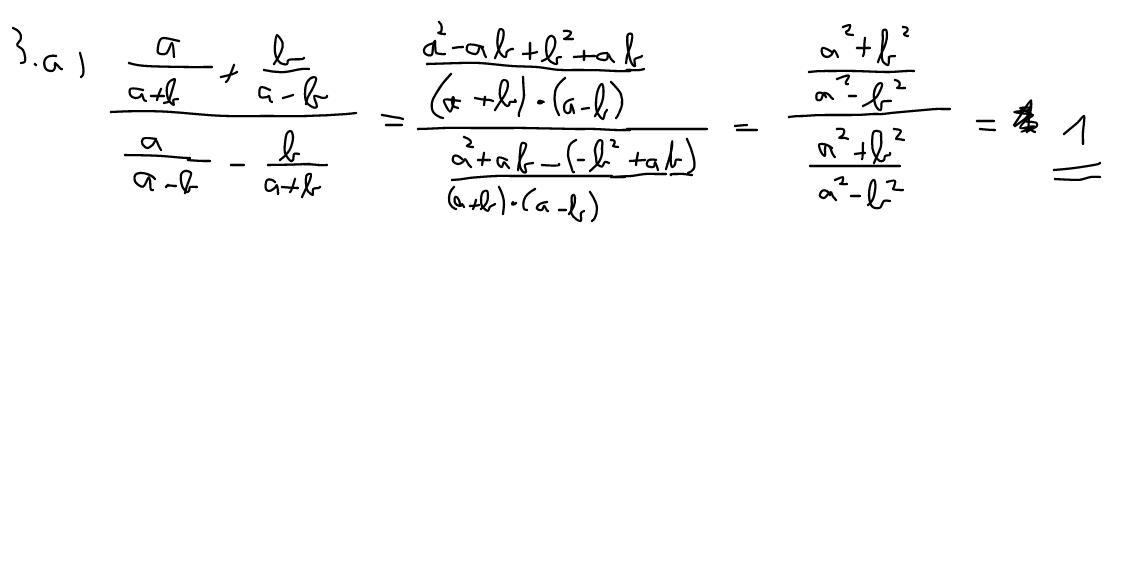 3. a) \frac{\frac{a}{a+b} + \frac{b}{a-b}}{\frac{a}{a-b} - \frac{b}{a+b}} = \frac{\frac{a^2-ab+b^2+ab}{(a+b)·(a-b)}}{\frac{a^2+ab-(-b^2+ab)}{(a+b)·(a-b)}} = \frac{\frac{a^2+b^2}{a^2-b^2}}{\frac{a^2+b^2}{a^2-b^2}} = 1